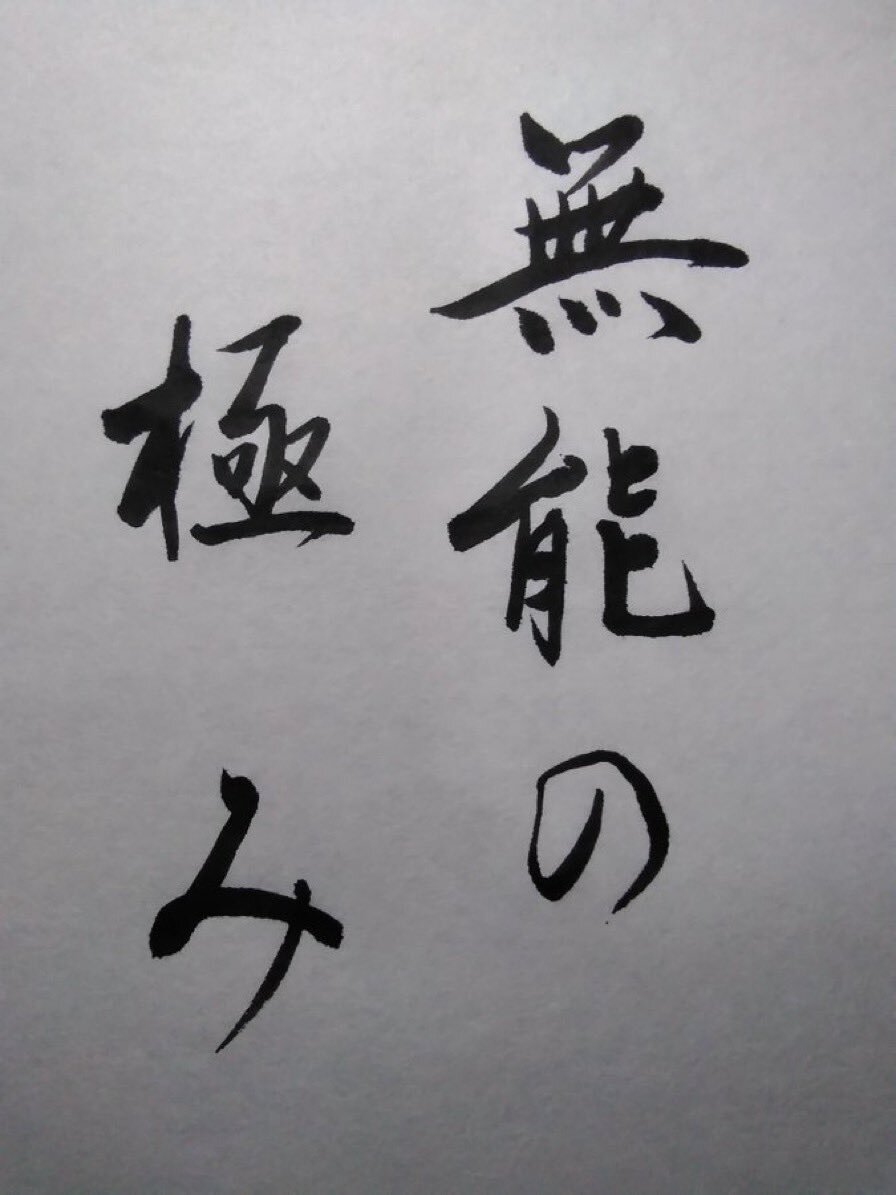 無能の
極み